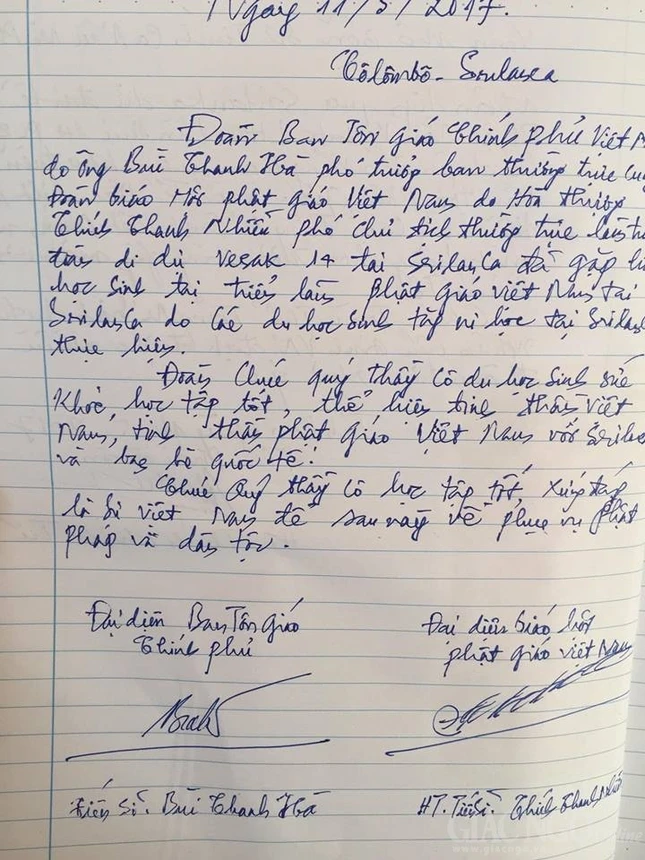 Ngày 11/5/2017.
Côlômbô - Srilanca
Đoàn Ban Tôn giáo Chính phủ Việt
do ông Bùi Thanh Hà phó trưởng ban thường trực
Đoàn Giáo Hội phật giáo Việt Nam do Hòa thượng
Thích Thanh Nhiễu phó chủ tịch thường trực làm
đoàn đi dự Vesak 14 tại Srilanca đã gặp
học sinh tại triển lãm phật giáo việt Nam tại
Srilanca do các du học sinh tăng ni học tại
thực hiện.
Đoàn Chúc quý thầy cô du học sinh sức
Khỏe, học tập tốt, thể hiện tinh thần Việt
Nam, tinh thần phật giáo Việt Nam với
và bạn bè quốc tế!
Chúc Quý thầy cô học tập tốt, xứng đáng
là việt Nam để sau này về phục vụ phật
pháp và dân tộc.
Đại diện Ban Tôn Giáo
Chính phủ
Đại diện Giáo hội
phật giáo việt Nam
Tiến Sĩ. Bùi Thanh Hà
HT. Tiến Sĩ. Thích Thanh Nhiễu
GIÁC NGỘ online